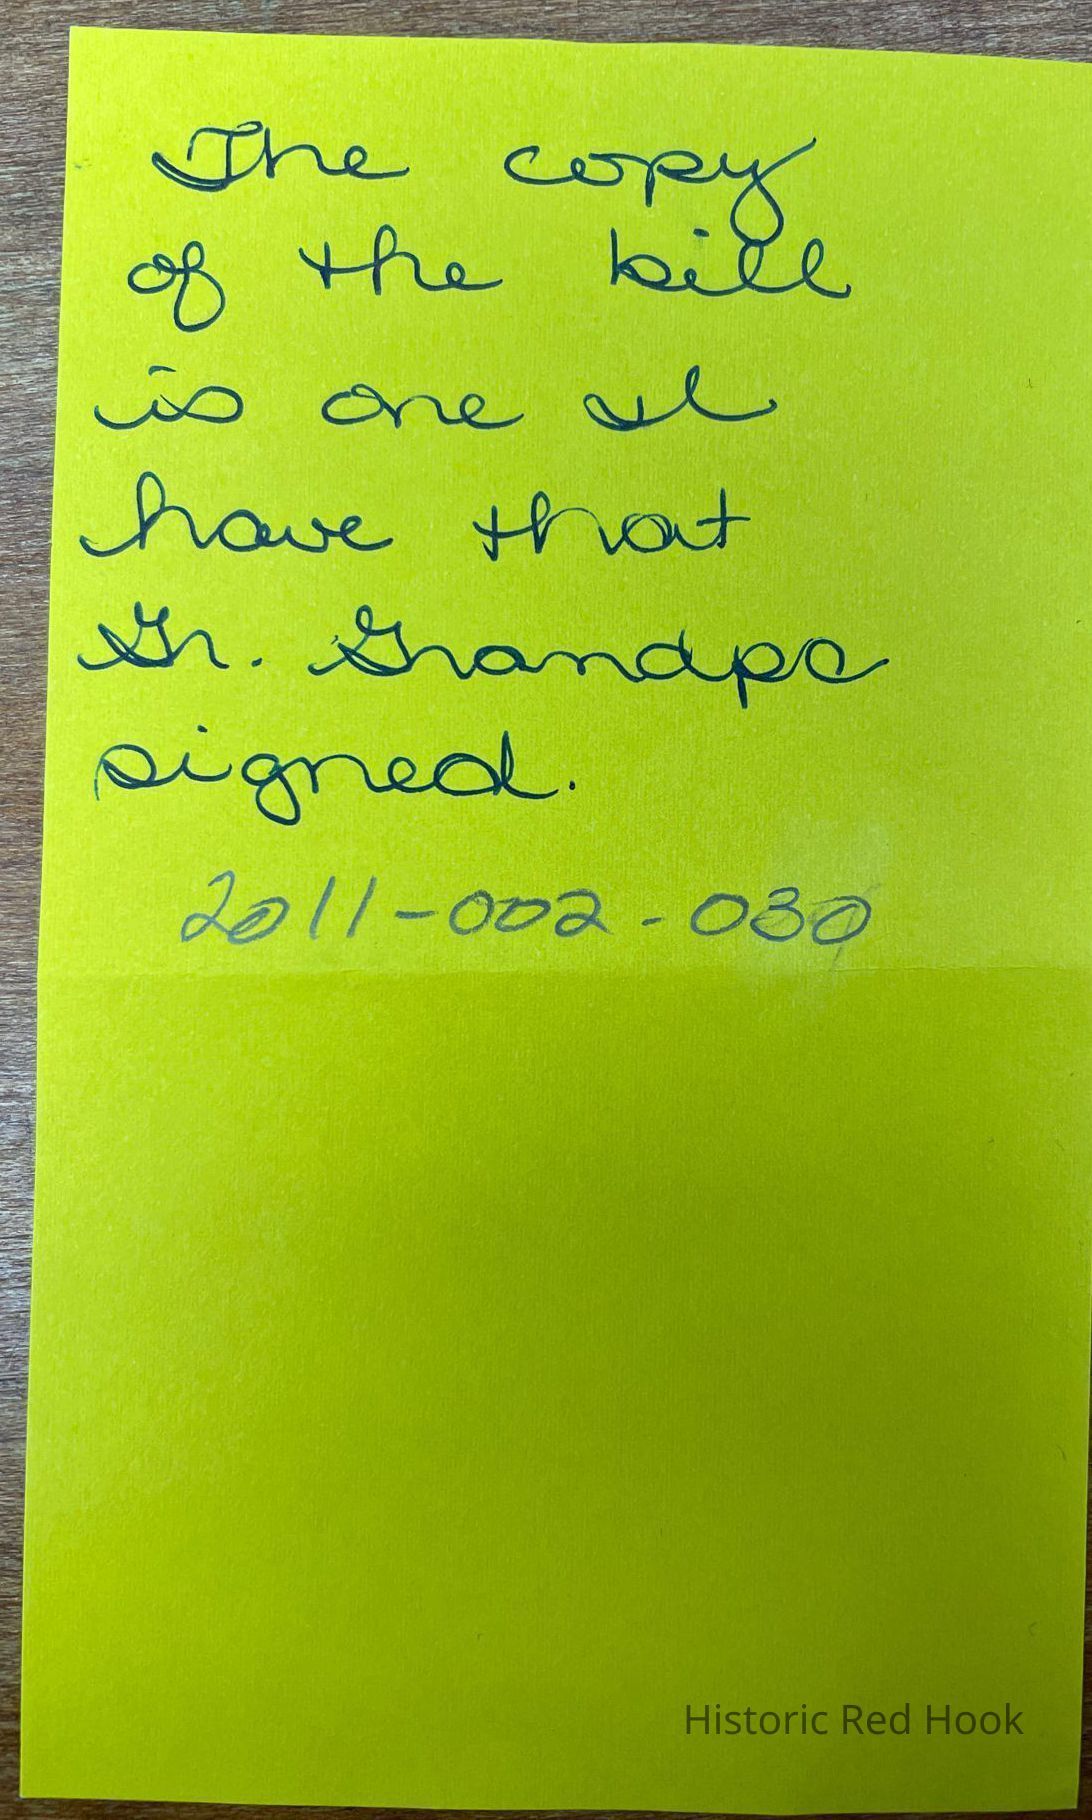 The copy
of the bill
is one I
have that
Gr. Grandpa
signed.
2011-002-030
Historic Red Hook